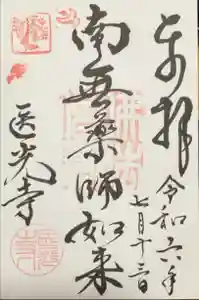 奉拝
令和六年
七月十三日
南無薬師如来
医光寺